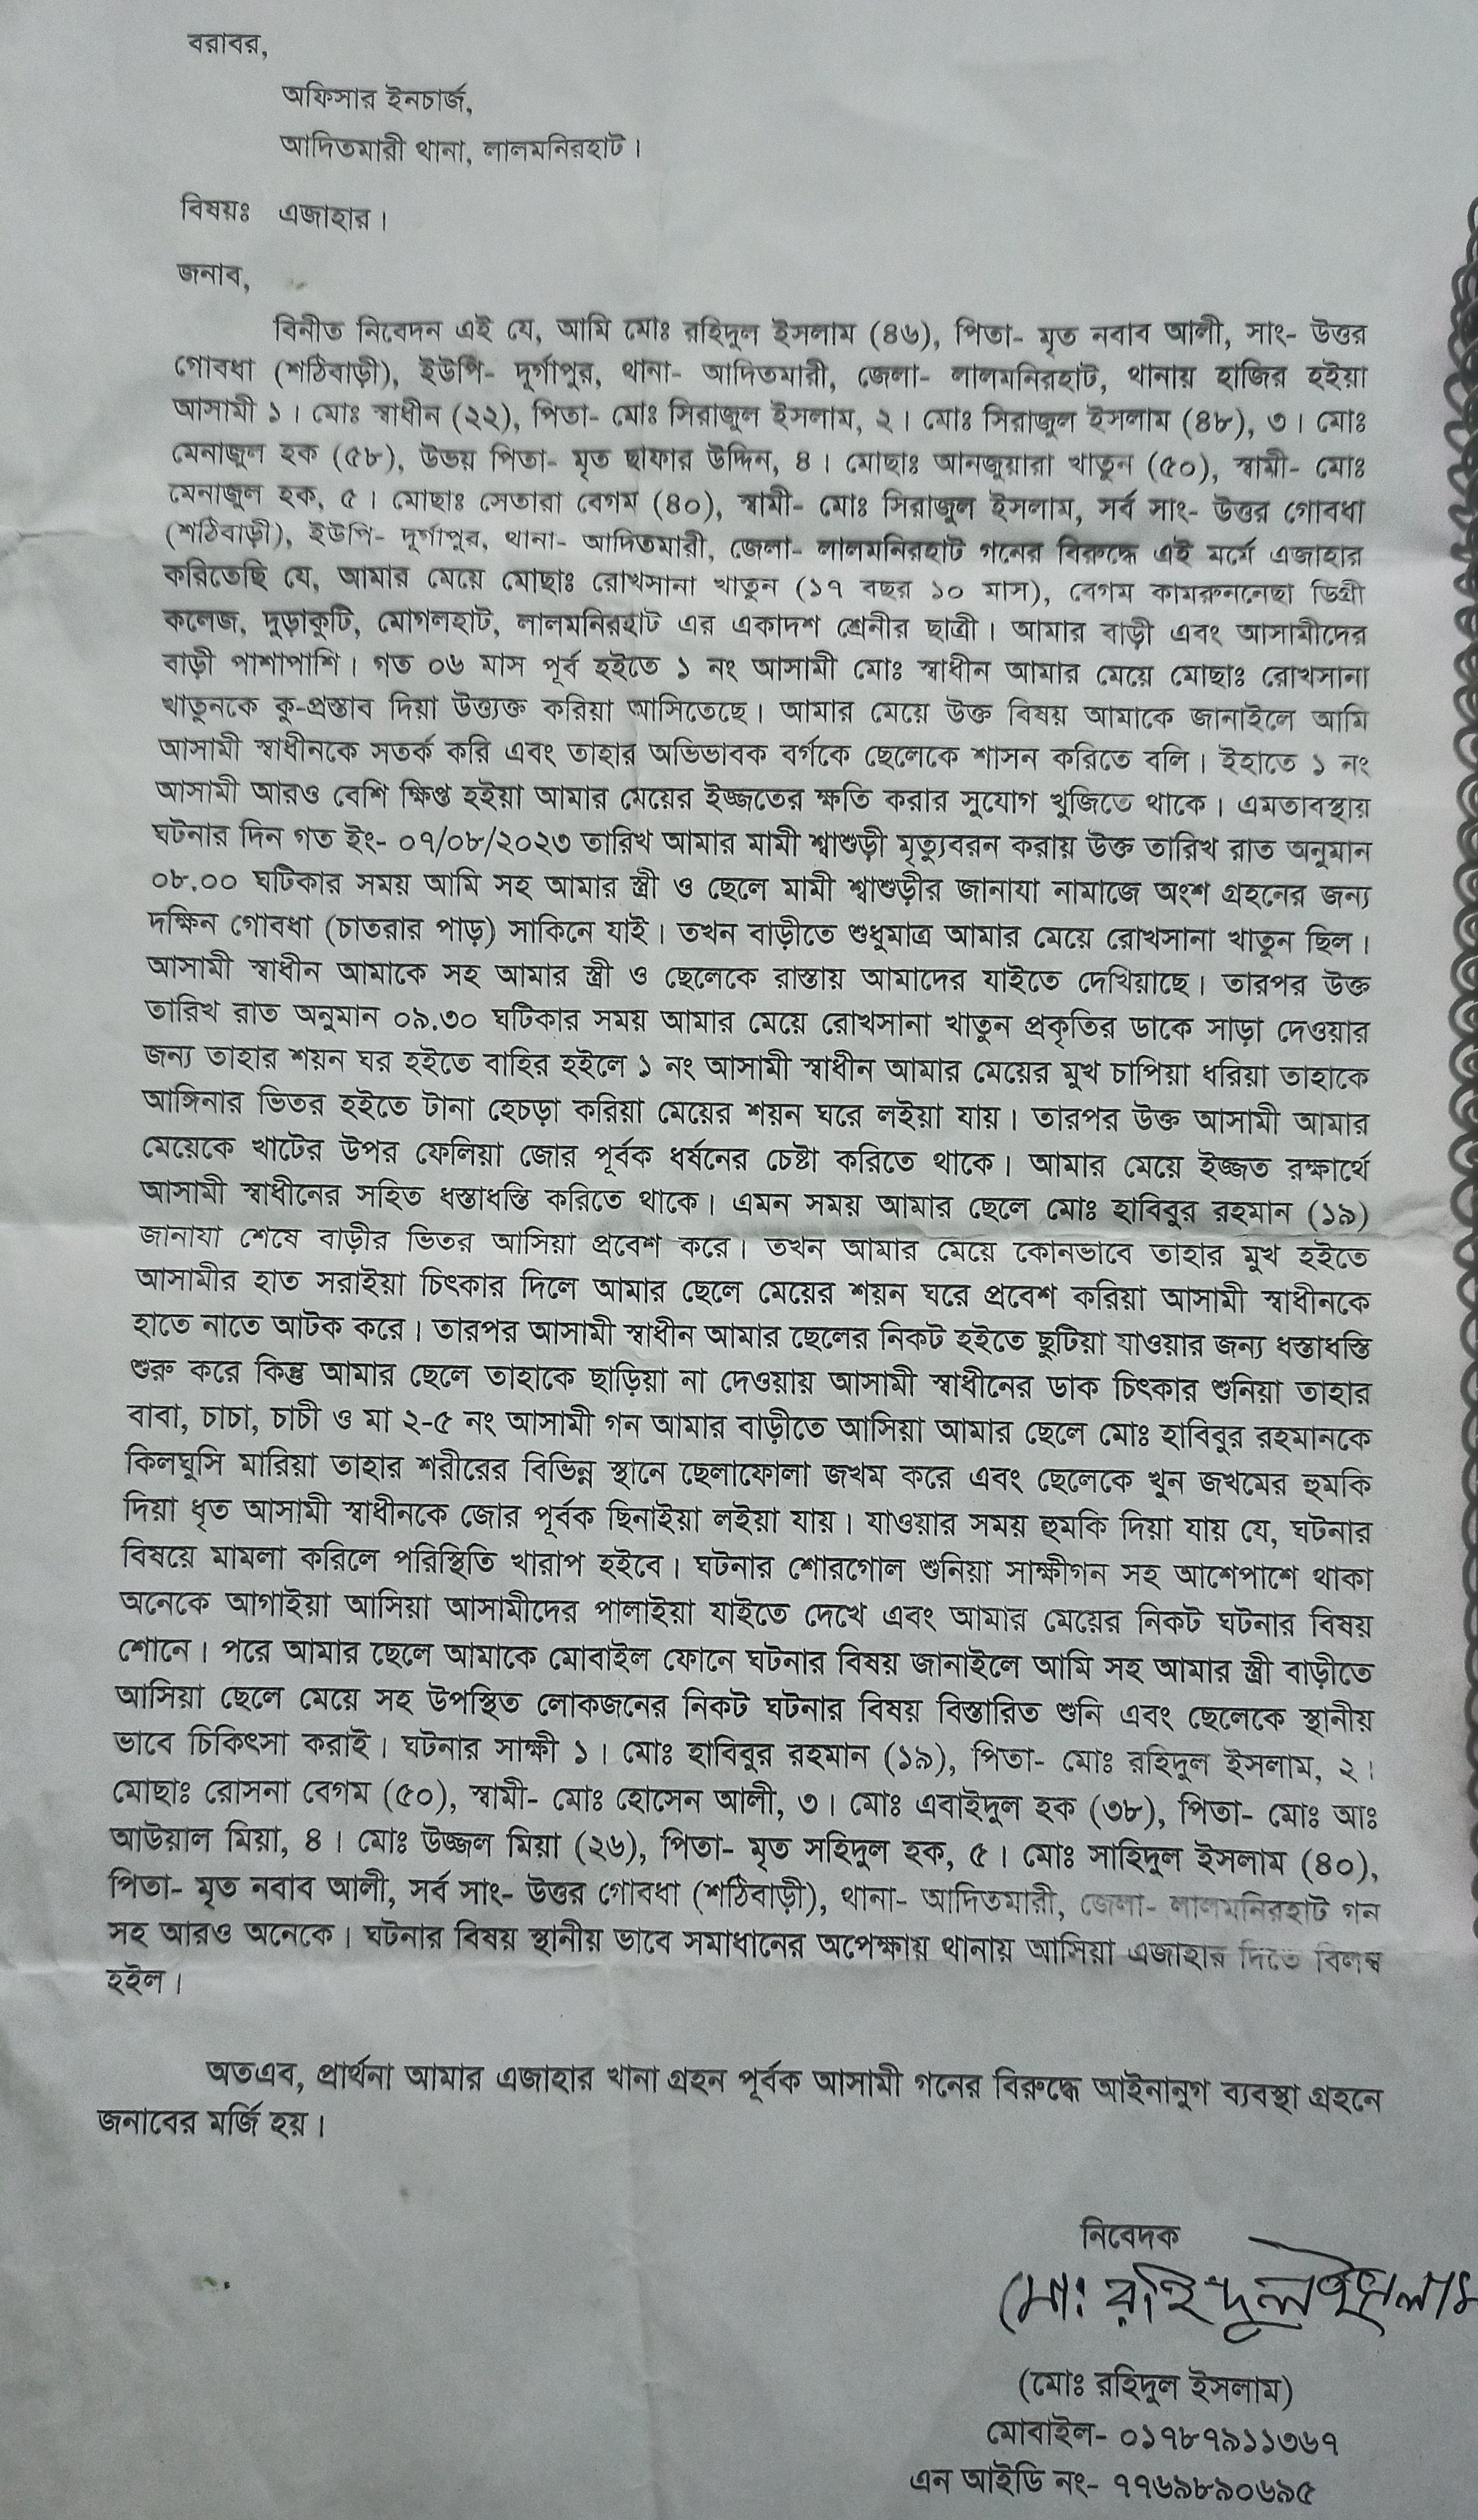 বরাবর,
অফিসার ইনচার্জ,
আদিতমারী থানা, লালমনিরহাট।
বিষয়ঃ এজাহার।
জনাব,
বিনীত নিবেদন এই যে, আমি মোঃ রহিদুল ইসলাম (৪৬), পিতা- মৃত নবাব আলী, সাং- উত্তর
গোবধা (শঠিবাড়ী), ইউপি- দূর্গাপুর, থানা- আদিতমারী, জেলা- লালমনিরহাট, থানায় হাজির হইয়া
আসামী ১। মোঃ স্বাধীন (২২), পিতা- মোঃ সিরাজুল ইসলাম, ২। মোঃ সিরাজুল ইসলাম (৪৮), ৩। মোঃ
মেনাজুল হক (৫৮), উভয় পিতা- মৃত ছাফার উদ্দিন, ৪। মোছাঃ আনজুয়ারা খাতুন (৫০), স্বামী- মোঃ
মেনাজুল হক, ৫। মোছাঃ সেতারা বেগম (৪০), স্বামী- মোঃ সিরাজুল ইসলাম, সর্ব সাং- উত্তর গোবধা
(শঠিবাড়ী), ইউপি- দূর্গাপুর, থানা- আদিতমারী, জেলা- লালমনিরহাট গনের বিরুদ্ধে এই মর্মে এজাহার
করিতেছি যে, আমার মেয়ে মোছাঃ রোখসানা খাতুন (১৭ বছর ১০ মাস), বেগম কামরুননেছা ডিগ্রী
কলেজ, দুড়াকুটি, মোগলহাট, লালমনিরহাট এর একাদশ শ্রেনীর ছাত্রী। আমার বাড়ী এবং আসামীদের
বাড়ী পাশাপাশি। গত ০৬ মাস পূর্ব হইতে ১ নং আসামী মোঃ স্বাধীন আমার মেয়ে মোছাঃ রোখসানা
খাতুনকে কু-প্রস্তাব দিয়া উত্ত্যক্ত করিয়া আসিতেছে। আমার মেয়ে উক্ত বিষয় আমাকে জানাইলে আমি
আসামী স্বাধীনকে সতর্ক করি এবং তাহার অভিভাবক বর্গকে ছেলেকে শাসন করিতে বলি। ইহাতে ১ নং
আসামী আরও বেশি ক্ষিপ্ত হইয়া আমার মেয়ের ইজ্জতের ক্ষতি করার সুযোগ খুজিতে থাকে। এমতাবস্থায়
ঘটনার দিন গত ইং- ০৭/০৮/২০২৩ তারিখ আমার মামী শ্বাশুড়ী মৃত্যুবরন করায় উক্ত তারিখ রাত অনুমান
০৮.০০ ঘটিকার সময় আমি সহ আমার স্ত্রী ও ছেলে মামী শ্বাশুড়ীর জানাযা নামাজে অংশ গ্রহনের জন্য
দক্ষিন গোবধা (চাতরার পাড়) সাকিনে যাই। তখন বাড়ীতে শুধুমাত্র আমার মেয়ে রোখসানা খাতুন ছিল।
আসামী স্বাধীন আমাকে সহ আমার স্ত্রী ও ছেলেকে রাস্তায় আমাদের যাইতে দেখিয়াছে। তারপর উক্ত
তারিখ রাত অনুমান ০৯.৩০ ঘটিকার সময় আমার মেয়ে রোখসানা খাতুন প্রকৃতির ডাকে সাড়া দেওয়ার
জন্য তাহার শয়ন ঘর হইতে বাহির হইলে ১ নং আসামী স্বাধীন আমার মেয়ের মুখ চাপিয়া ধরিয়া তাহাকে
আঙ্গিনার ভিতর হইতে টানা হেচড়া করিয়া মেয়ের শয়ন ঘরে লইয়া যায়। তারপর উক্ত আসামী আমার
মেয়েকে খাটের উপর ফেলিয়া জোর পূর্বক ধর্ষনের চেষ্টা করিতে থাকে। আমার মেয়ে ইজ্জত রক্ষার্থে
আসামী স্বাধীনের সহিত ধস্তাধস্তি করিতে থাকে। এমন সময় আমার ছেলে মোঃ হাবিবুর রহমান (১৯)
জানাযা শেষে বাড়ীর ভিতর আসিয়া প্রবেশ করে। তখন আমার মেয়ে কোনভাবে তাহার মুখ হইতে
আসামীর হাত সরাইয়া চিৎকার দিলে আমার ছেলে মেয়ের শয়ন ঘরে প্রবেশ করিয়া আসামী স্বাধীনকে
হাতে নাতে আটক করে। তারপর আসামী স্বাধীন আমার ছেলের নিকট হইতে ছুটিয়া যাওয়ার জন্য ধস্তাধস্তি
শুরু করে কিন্তু আমার ছেলে তাহাকে ছাড়িয়া না দেওয়ায় আসামী স্বাধীনের ডাক চিৎকার শুনিয়া তাহার
বাবা, চাচা, চাচী ও মা ২-৫ নং আসামী গন আমার বাড়ীতে আসিয়া আমার ছেলে মোঃ হাবিবুর রহমানকে
কিলঘুসি মারিয়া তাহার শরীরের বিভিন্ন স্থানে ছেলাফোলা জখম করে এবং ছেলেকে খুন জখমের হুমকি
দিয়া ধৃত আসামী স্বাধীনকে জোর পূর্বক ছিনাইয়া লইয়া যায়। যাওয়ার সময় হুমকি দিয়া যায় যে, ঘটনার
বিষয়ে মামলা করিলে পরিস্থিতি খারাপ হইবে। ঘটনার শোরগোল শুনিয়া সাক্ষীগন সহ আশেপাশে থাকা
অনেকে আগাইয়া আসিয়া আসামীদের পালাইয়া যাইতে দেখে এবং আমার মেয়ের নিকট ঘটনার বিষয়
শোনে। পরে আমার ছেলে আমাকে মোবাইল ফোনে ঘটনার বিষয় জানাইলে আমি সহ আমার স্ত্রী বাড়ীতে
আসিয়া ছেলে মেয়ে সহ উপস্থিত লোকজনের নিকট ঘটনার বিষয় বিস্তারিত শুনি এবং ছেলেকে স্থানীয়
ভাবে চিকিৎসা করাই। ঘটনার সাক্ষী ১। মোঃ হাবিবুর রহমান (১৯), পিতা- মোঃ রহিদুল ইসলাম, ২।
মোছাঃ রোসনা বেগম (৫০), স্বামী- মোঃ হোসেন আলী, ৩। মোঃ এবাইদুল হক (৩৮), পিতা- মোঃ আঃ
আউয়াল মিয়া, ৪। মোঃ উজ্জল মিয়া (২৬), পিতা- মৃত সহিদুল হক, ৫। মোঃ সাহিদুল ইসলাম (৪০),
পিতা- মৃত নবাব আলী, সর্ব সাং- উত্তর গোবধা (শঠিবাড়ী), থানা- আদিতমারী, জেলা- লালমনিরহাট গন
সহ আরও অনেকে। ঘটনার বিষয় স্থানীয় ভাবে সমাধানের অপেক্ষায় থানায় আসিয়া এজাহার দিতে বিলম্ব
হইল।
অতএব, প্রার্থনা আমার এজাহার খানা গ্রহন পূর্বক আসামী গনের বিরুদ্ধে আইনানুগ ব্যবস্থা গ্রহনে
জনাবের মর্জি হয়।
নিবেদক
মোঃ রহিদুল ইসলাম
(মোঃ রহিদুল ইসলাম)
মোবাইল- ০১৭৮৭৯১১৩৬৭
এন আইডি নং- ৭৭৬৯৮৯০৬৯৫